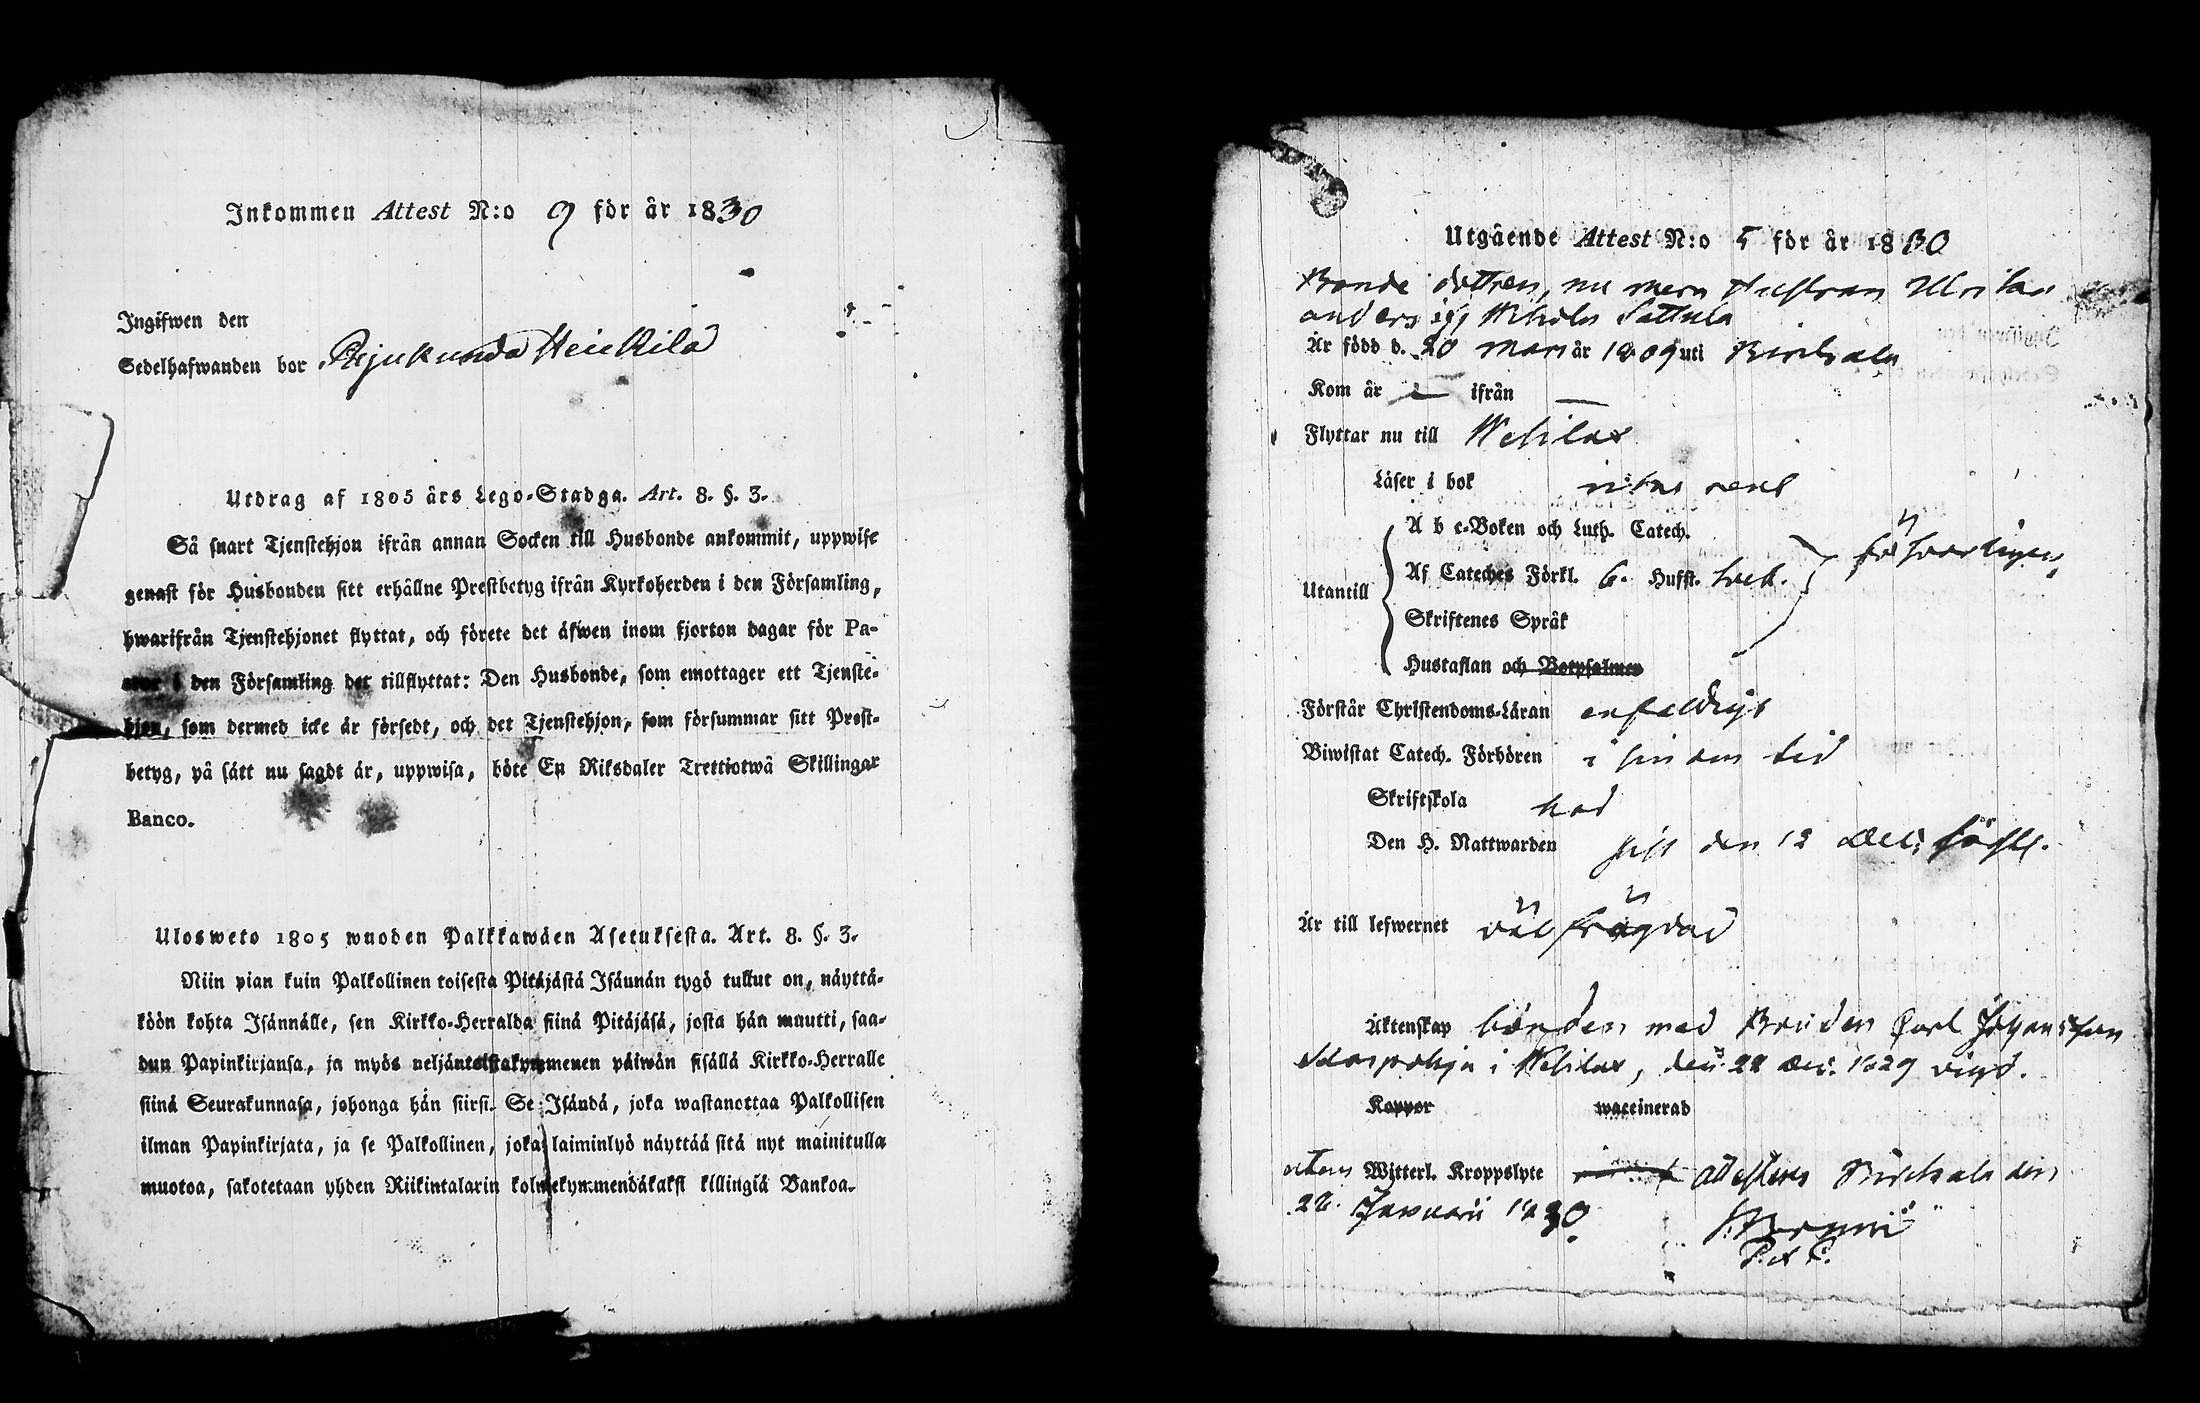 Inkommen Attest N:o 9 för år 1830
Ingifwen den
Sedelhafwanden bor Heickilä
Utdrag af 1805 års Lego-Stadga. Art. 8. §. 3.
Så snart Tjenstehjon ifrån annan Socken till Husbonde ankommit, uppwise
genast för Husbonden sitt erhållne Prestbetyg ifrån Kyrkoherden i den Församling,
hwarifrån Tjenstehjonet flyttat, och förete det äfwen inom fjorton dagar för Pa-
stor i den Församling det tillflyttat: Den Husbonde, som emottager ett Tjenste-
hjon, som dermed icke är försedt, och det Tjenstehjon, som försummar sitt Prest-
betyg, på sätt nu sagdt är, uppwisa, böte En Riksdaler Trettiotwå Skillingar
Banco.
Ulosweto 1805 wuoden Palkkawäen Asetuksesta. Art. 8. §. 3.
Niin pian kuin Palkollinen toisesta Pitäjästä Isäunän tygö tullut on, näyttä-
köön kohta Isännälle, sen Kirkko-Herralda siinä Pitäjäsä, josta hän muutti, saa-
dun Papinkirjansa, ja myös neljäntoistakymmenen päiwän sisällä Kirkko-Herralle
siinä Seurakunnasa, johonga hän siirsi. Se Isändä, joka wastanottaa Palkollisen
ilman Papinkirjata, ja se Palkollinen, joka laiminlyö näyttää sitä nyt mainitulla
muotoa, sakotetaan yhden Riikintalarin kolmekymmendäkaksi killingiä Bankoa.
Utgående Attest N:o 5 för år 1830
Bonde dottren, nu mera Hustrun Ulrika
Anders
Är född d. 20 Mars år 1809 uti Birckala
Kom år — ifrån —
Flyttar nu till Wesilax
Läser i bok rent
A b c-Boken och Luth. Catech.
Utantill Af Cateches Förkl. 6. Hufst. försvarligen
Skriftenes Språk
Hustaflan och Botpsalmer
Förstår Christendoms-Läran enfaldigt
Biwistat Catech. Förhören i sin tid
Skriftskola
Den H. Nattwarden sist den 12 Dec:
Är till lefwernet väl frägdad
Äktenskap bunden med Bonden Carl Johansson
i Wesilax, den 22 Dec: 1829 vigd.
Koppor waccinerad
utan Witterl. Kroppslyte attesteras Birckala den
28 Januarii 1830